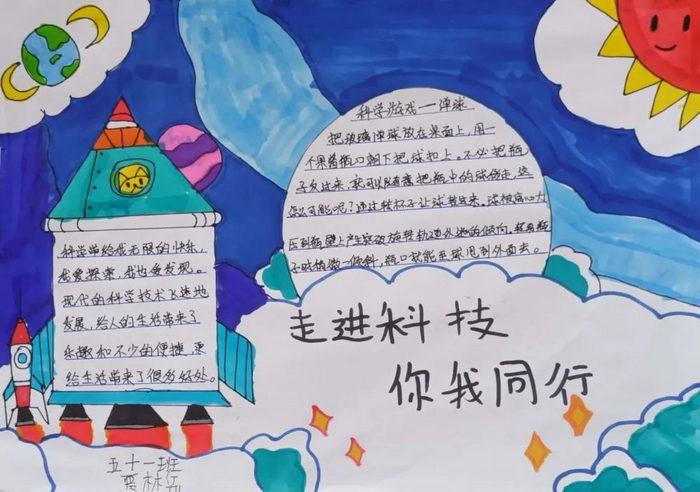 科学游戏一弹球
把玻璃弹球放在桌面上,用一
个果酱瓶口朝下把球扣上。不必把瓶
子反过来,就可以随意把瓶中的球傍走,这
怎么可能呢?通过转杯子让球转起来。球被离心力
压到瓶壁上产生
子时稍微一倾斜,瓶口就能至球甩到外面去。
科学带给我无限的快乐,
我爱探索,我也爱发现。
现代的科学技术飞速地
发展,给人的生活带来了
乐趣和不少的便捷,更
给生活带来了很多好处。
走进科技
你我同行
五十一班